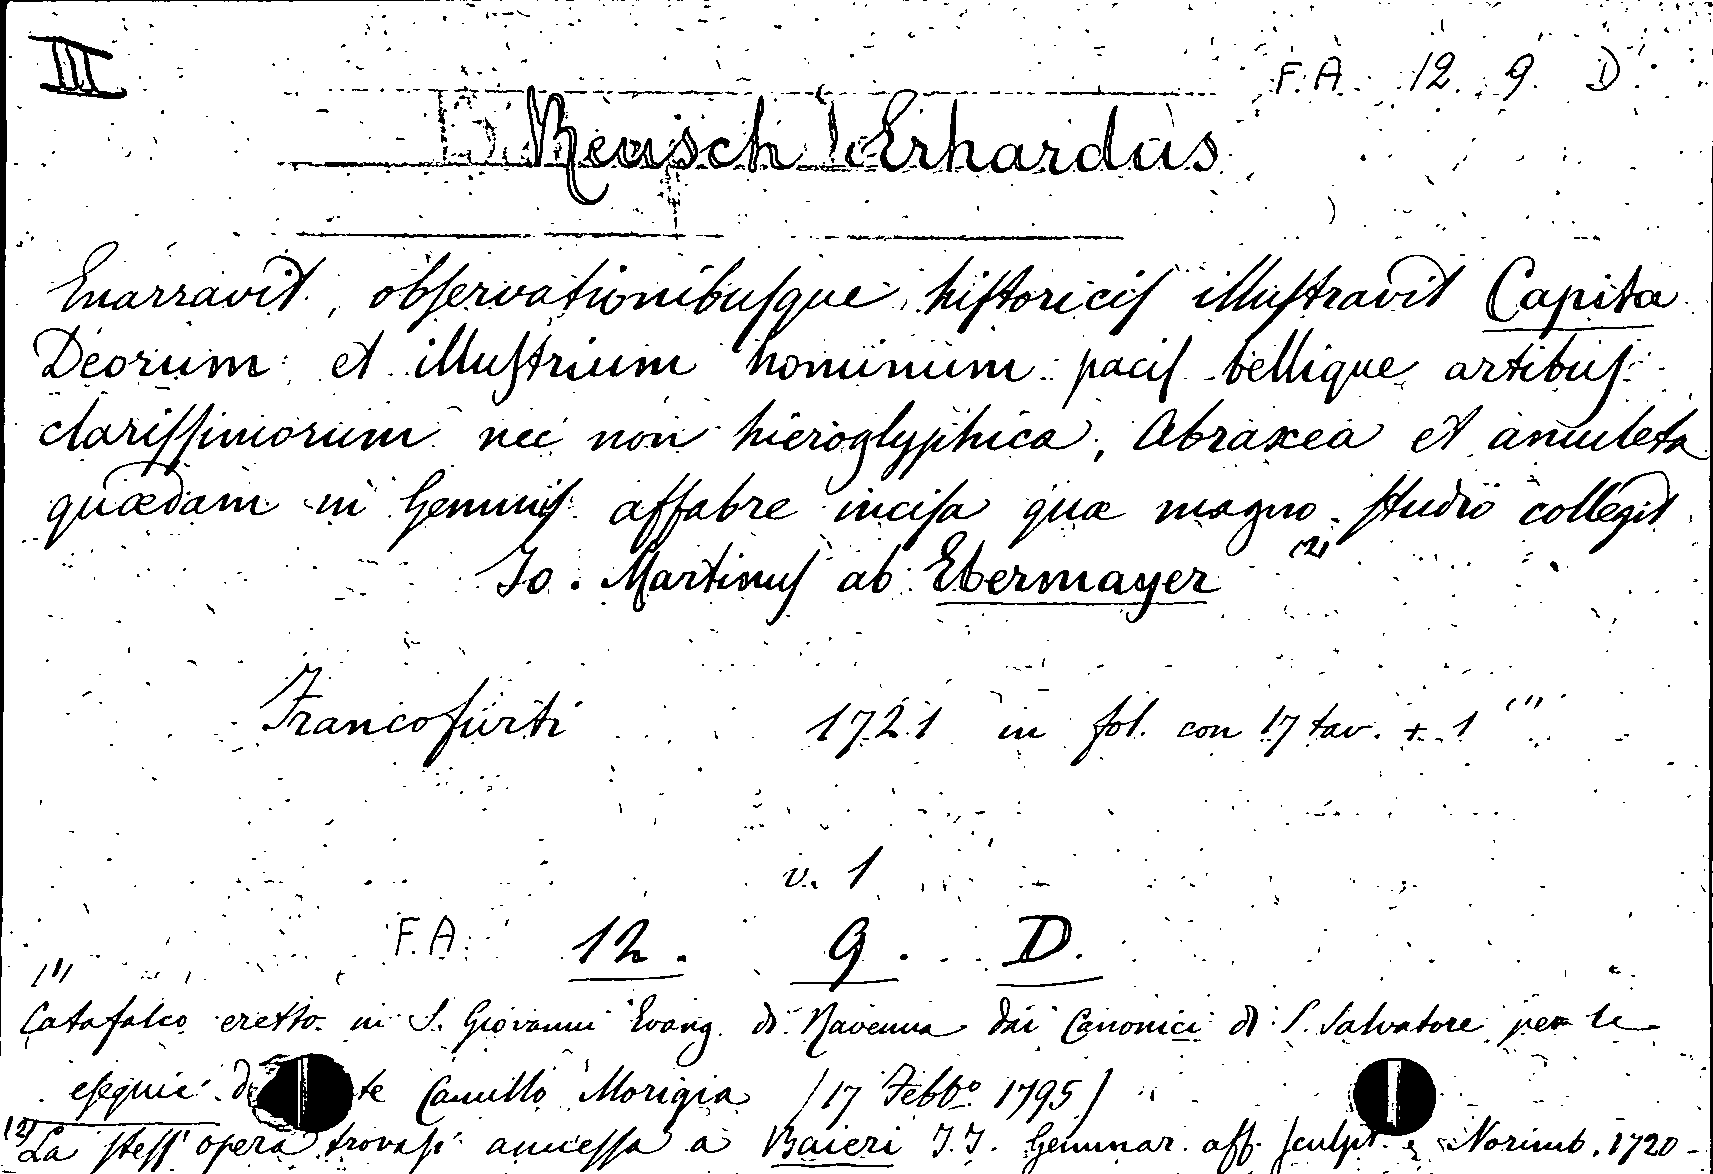 III
F. A. 12. 9. D.
Reusch Erhardus
Enarravit, obſervationibuſque hiſtoriciſ illuſtravit Capita
Deorum et illuſtrium hominum paciſ bellique artibuſ
clariſſimorum nec non hieroglyphica, Abraxea et amuleta
quædam in Gemmiſ affabre inciſa quæ magno ſtudio collegit
Jo. Martinuſ ab Ebermayer (2)
Francofurti 1721 in fol. con 17 tav. + 1 (1)
v. 1
F. A. 12. 9. D.
(1)
Catafalco eretto in S. Giovanni Evang. di Ravenna dai Canonici di S. Salvatore per le
eſequie te Camillo Morigia (17 Febbo 1795)
(2) La steſſ opera trovaſi anneſſa a Baieri J. J. Gemmar. aff. ſculpt. Norimb. 1720